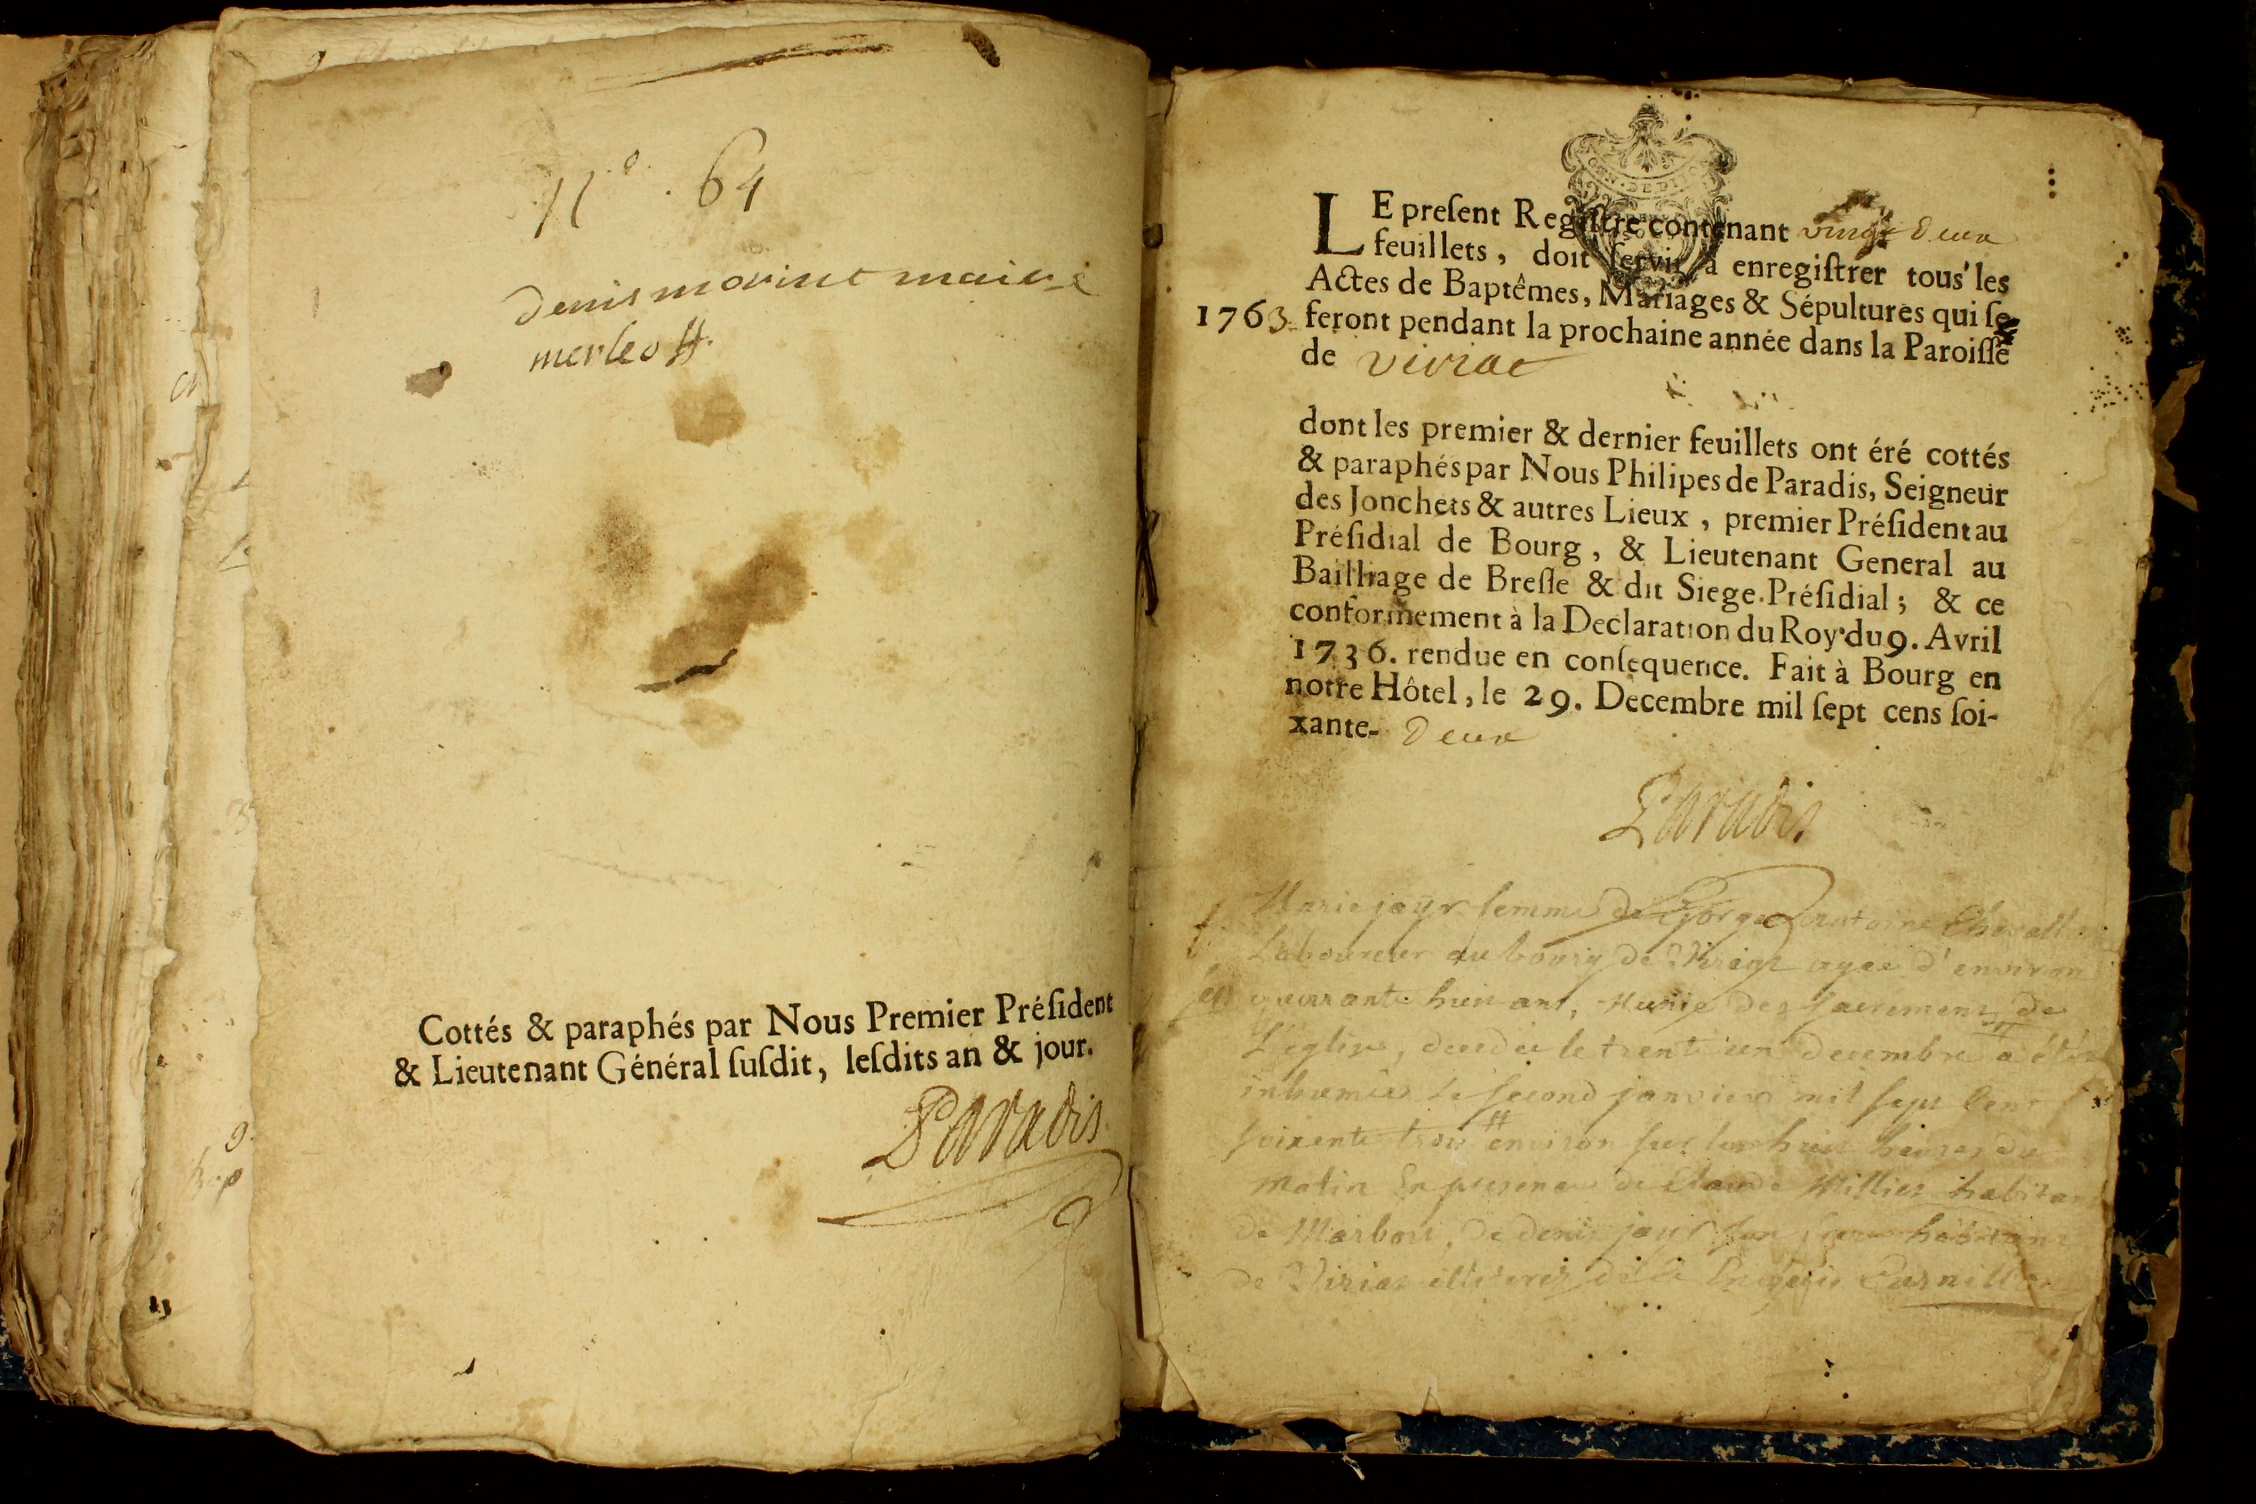 N.° 64
denis morint
merle
Cottés & paraphés par Nous Premier Préſident
& Lieutenant Général ſuſdit, leſdits an & jour.
Paradis
GEN. DE DIJON
LE preſent Regiſtre contenant vingt deux
feuillets, doit ſervir à enregiſtrer tous les
Actes de Baptêmes, Mariages & Sépultures qui ſe
1763 feront pendant la prochaine année dans la Paroiſſe
de viriat
dont les premier & dernier feuillets ont éré cottés
& paraphés par Nous Philipes de Paradis, Seigneur
des Jonchets & autres Lieux, premier Préſident au
Préſidial de Bourg, & Lieutenant General au
Bailliage de Breſſe & dit Siege Préſidial; & ce
conformement à la Declaration du Roy du 9. Avril
1736. rendue en conſequence. Fait à Bourg en
notre Hôtel, le 29. Decembre mil ſept cens ſoi-
xante- deux
Paradis
Marie jayr femme de antoine Chevallier
Laboureur au bourg de Viriat agee d'environ
quarante huit ans, Munie des sacremens de
L'eglise, decedee le trente un decembre a été
inhumée Le second janvier mil sept Cent
soixente trois environ sur les huit heures du
matin En presence de Claude Millier habitant
de Marbos, de denis jayr son frere habitant
de Viriat illiterez Curnillon